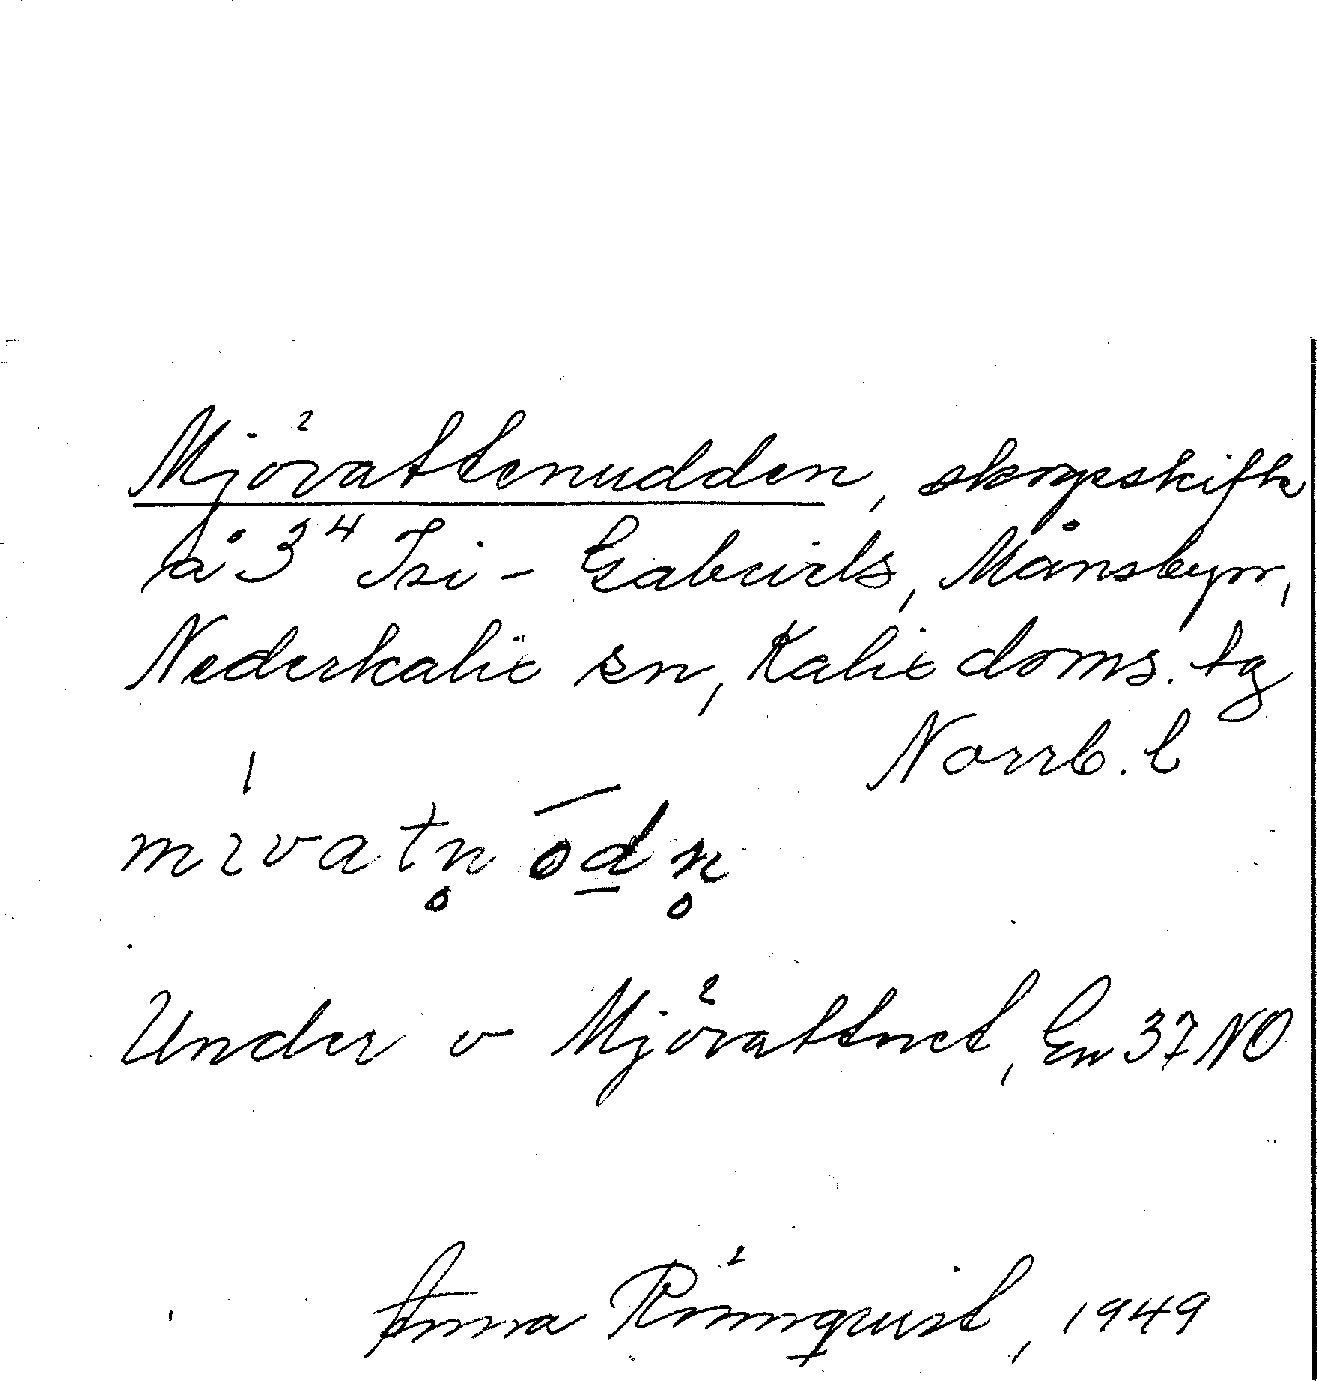 Mjövattenudden, skogsskifte
på 3⁴ Isi - Gabriels, Månsbyn,
Nederkalix sn, Kalix doms. tg
Norrb. l
mivatn̥ ōd̲n̥
Under v Mjövattnet, En 37 NO
Anna Rönnquist, 1949